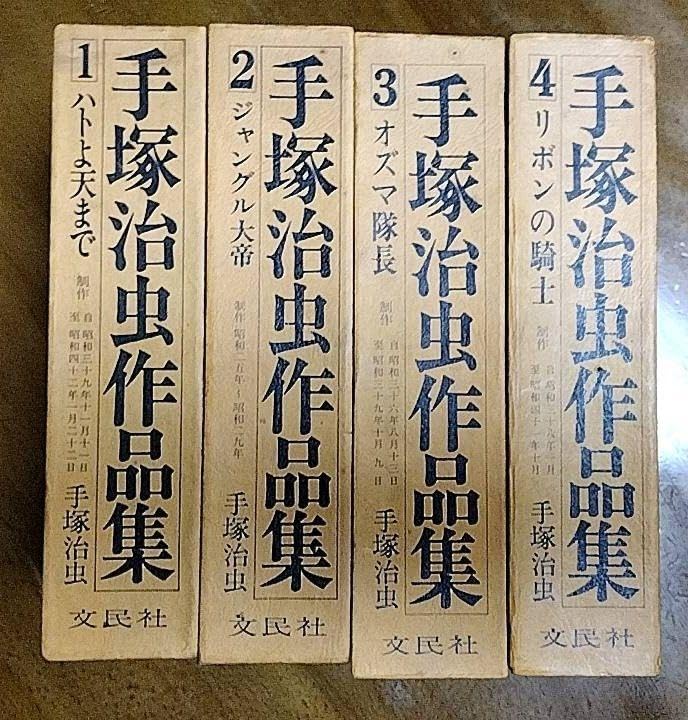 1
ハトよ天まで
手塚治虫作品集
制作
自 昭和三十九年十一月十一日
至 昭和四十二年一月二十二日
手塚治虫
文民社
2
ジャングル大帝
手塚治虫作品集
制作 昭和二五年~昭和二九年
手塚治虫
文民社
3
オズマ隊長
手塚治虫作品集
制作
自 昭和三十六年八月十三日
至 昭和三十九年十月九日
手塚治虫
文民社
4
リボンの騎士
手塚治虫作品集
制作
自 昭和三十八年
至 昭和四十
年十月
手塚治虫
文民社